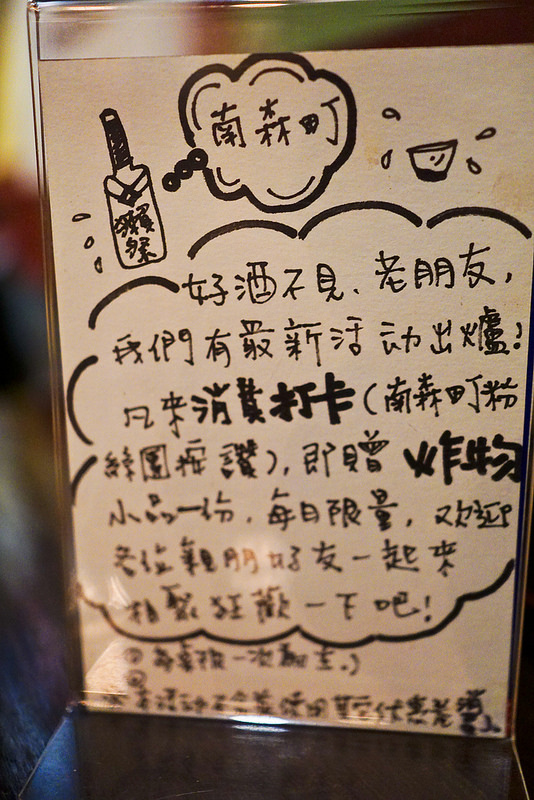 南森町
獺祭
好酒不見、老朋友，
我們有最新活动出爐!
凡來消費打卡(南森町粉
絲團按讚)，即贈炸物
小品一份，每日限量，欢迎
各位親朋好友一起來
相聚狂歡一下吧!